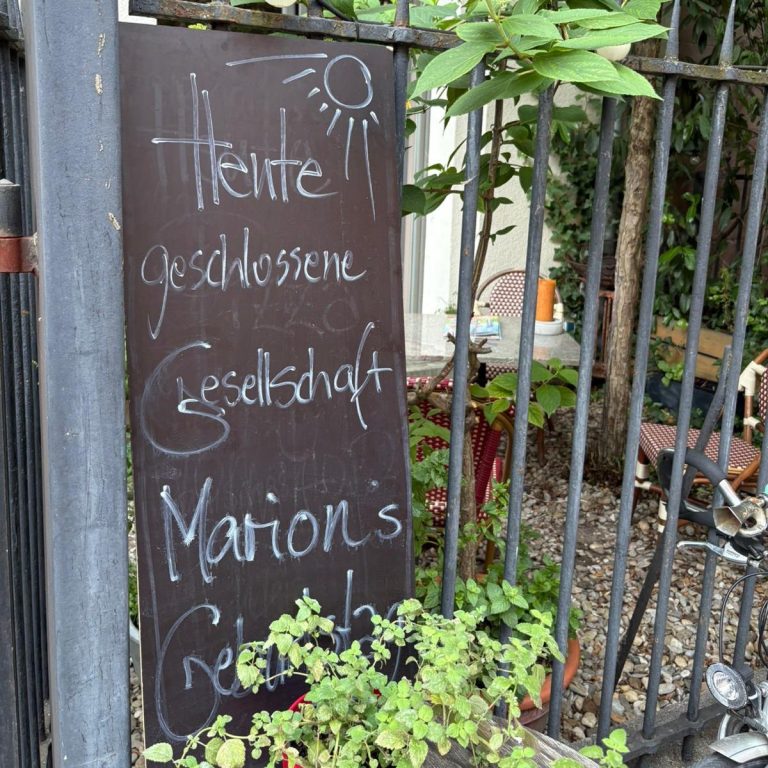 Heute
geschlossene
Gesellschaft
Marion's